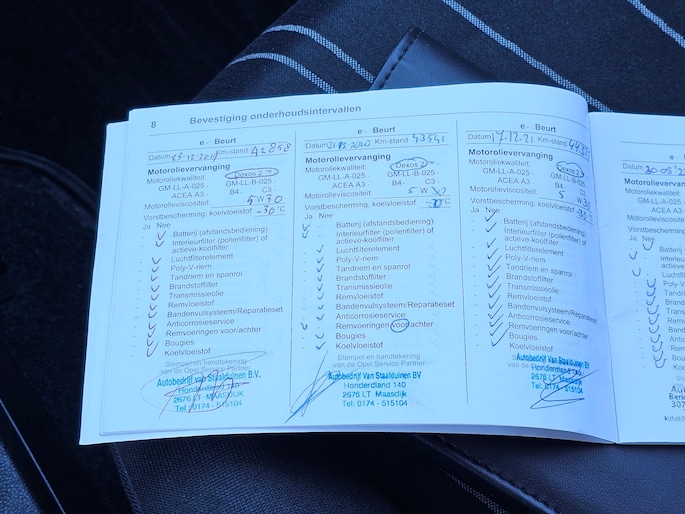 8 Bevestiging onderhoudsintervallen
e - Beurt
Datum Km-stand 42858
Motorolievervanging
Motoroliekwaliteit: Dexos 2™
GM-LL-A-025 - GM-LL-B-025 -
ACEA A3 - B4- C3 -
Motorolieviscositeit: 5 W 30
Vorstbescherming, koelvloeistof -30°C
Ja Nee
Batterij (afstandsbediening)
Interieurfilter (pollenfilter) of
actieve-koolfilter
Luchtfilterelement
Poly-V-riem
Tandriem en spanrol
Brandstoffilter
Transmissieolie
Remvloeistof
Bandenvulsysteem/Reparatieset
Anticorrosieservice
Remvoeringen voor/achter
Bougies
Koelvloeistof
Stempel en handtekening
van de Opel Service Partner
Autobedrijf Van Staalduinen B.V.
Honderdland 140
2676 LT MAASDIJK
Tel: 0174 - 515104
e - Beurt
Datum Km-stand 43541
Motorolievervanging
Motoroliekwaliteit: Dexos 2™
GM-LL-A-025 - GM-LL-B-025 -
ACEA A3 - B4- C3 -
Motorolieviscositeit: 5 W 30
Vorstbescherming, koelvloeistof °C
Ja Nee
Batterij (afstandsbediening)
Interieurfilter (pollenfilter) of
actieve-koolfilter
Luchtfilterelement
Poly-V-riem
Tandriem en spanrol
Brandstoffilter
Transmissieolie
Remvloeistof
Bandenvulsysteem/Reparatieset
Anticorrosieservice
Remvoeringen voor/achter
Bougies
Koelvloeistof
Stempel en handtekening
van de Opel Service Partner
Autobedrijf Van Staalduinen BV
Honderdland 140
2676 LT Maasdijk
Tel: 0174 - 515104
e - Beurt
Datum 17-12-21 Km-stand
Motorolievervanging
Motoroliekwaliteit: Dexos 2
GM-LL-A-025 - GM-LL-B-025 -
ACEA A3 - B4- C3 -
Motorolieviscositeit: 5 W 30
Vorstbescherming, koelvloeistof -30°C
Ja Nee
Batterij (afstandsbediening)
Interieurfilter (pollenfilter) of
actieve-koolfilter
Luchtfilterelement
Poly-V-riem
Tandriem en spanrol
Brandstoffilter
Transmissieolie
Remvloeistof
Bandenvulsysteem/Reparatieset
Anticorrosieservice
Remvoeringen voor/achter
Bougies
Koelvloeistof
Stempel en handtekening
van de Opel Service
Autobedrijf Van Staalduinen BV
Honderdland 140
2676 LT Maasdijk
Tel: 0174 - 515104
e -
Datum
Motorolievervanging
Motoroliekwaliteit
GM-LL-A-025
ACEA A3 -
Vorstbescherming
Ja Nee